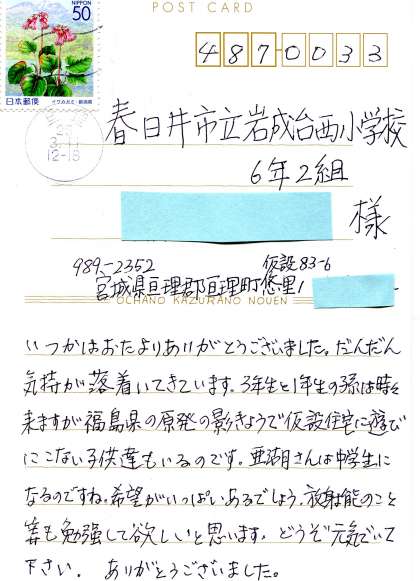 POST CARD
NIPPON
50
日本郵便
487-0033
12-18
春日井市立岩成台西小学校
6年2組
様
989-2352
仮設83-6
宮城県亘理郡亘理町悠里1
OCHANO KAZURANO NOUEN
いつかはおたよりありがとうございました。だんだん
気持が落着いてきています。3年生と1年生の孫は時々
来ますが福島県の原発の影きょうで仮設住宅に遊び
にこない子供達もいるのです。亜湖さんは中学生に
なるのですね。希望がいっぱいあるでしょう。放射能のこと
等も勉強して欲しいと思います。どうぞ元気でいて
下さい。ありがとうございました。